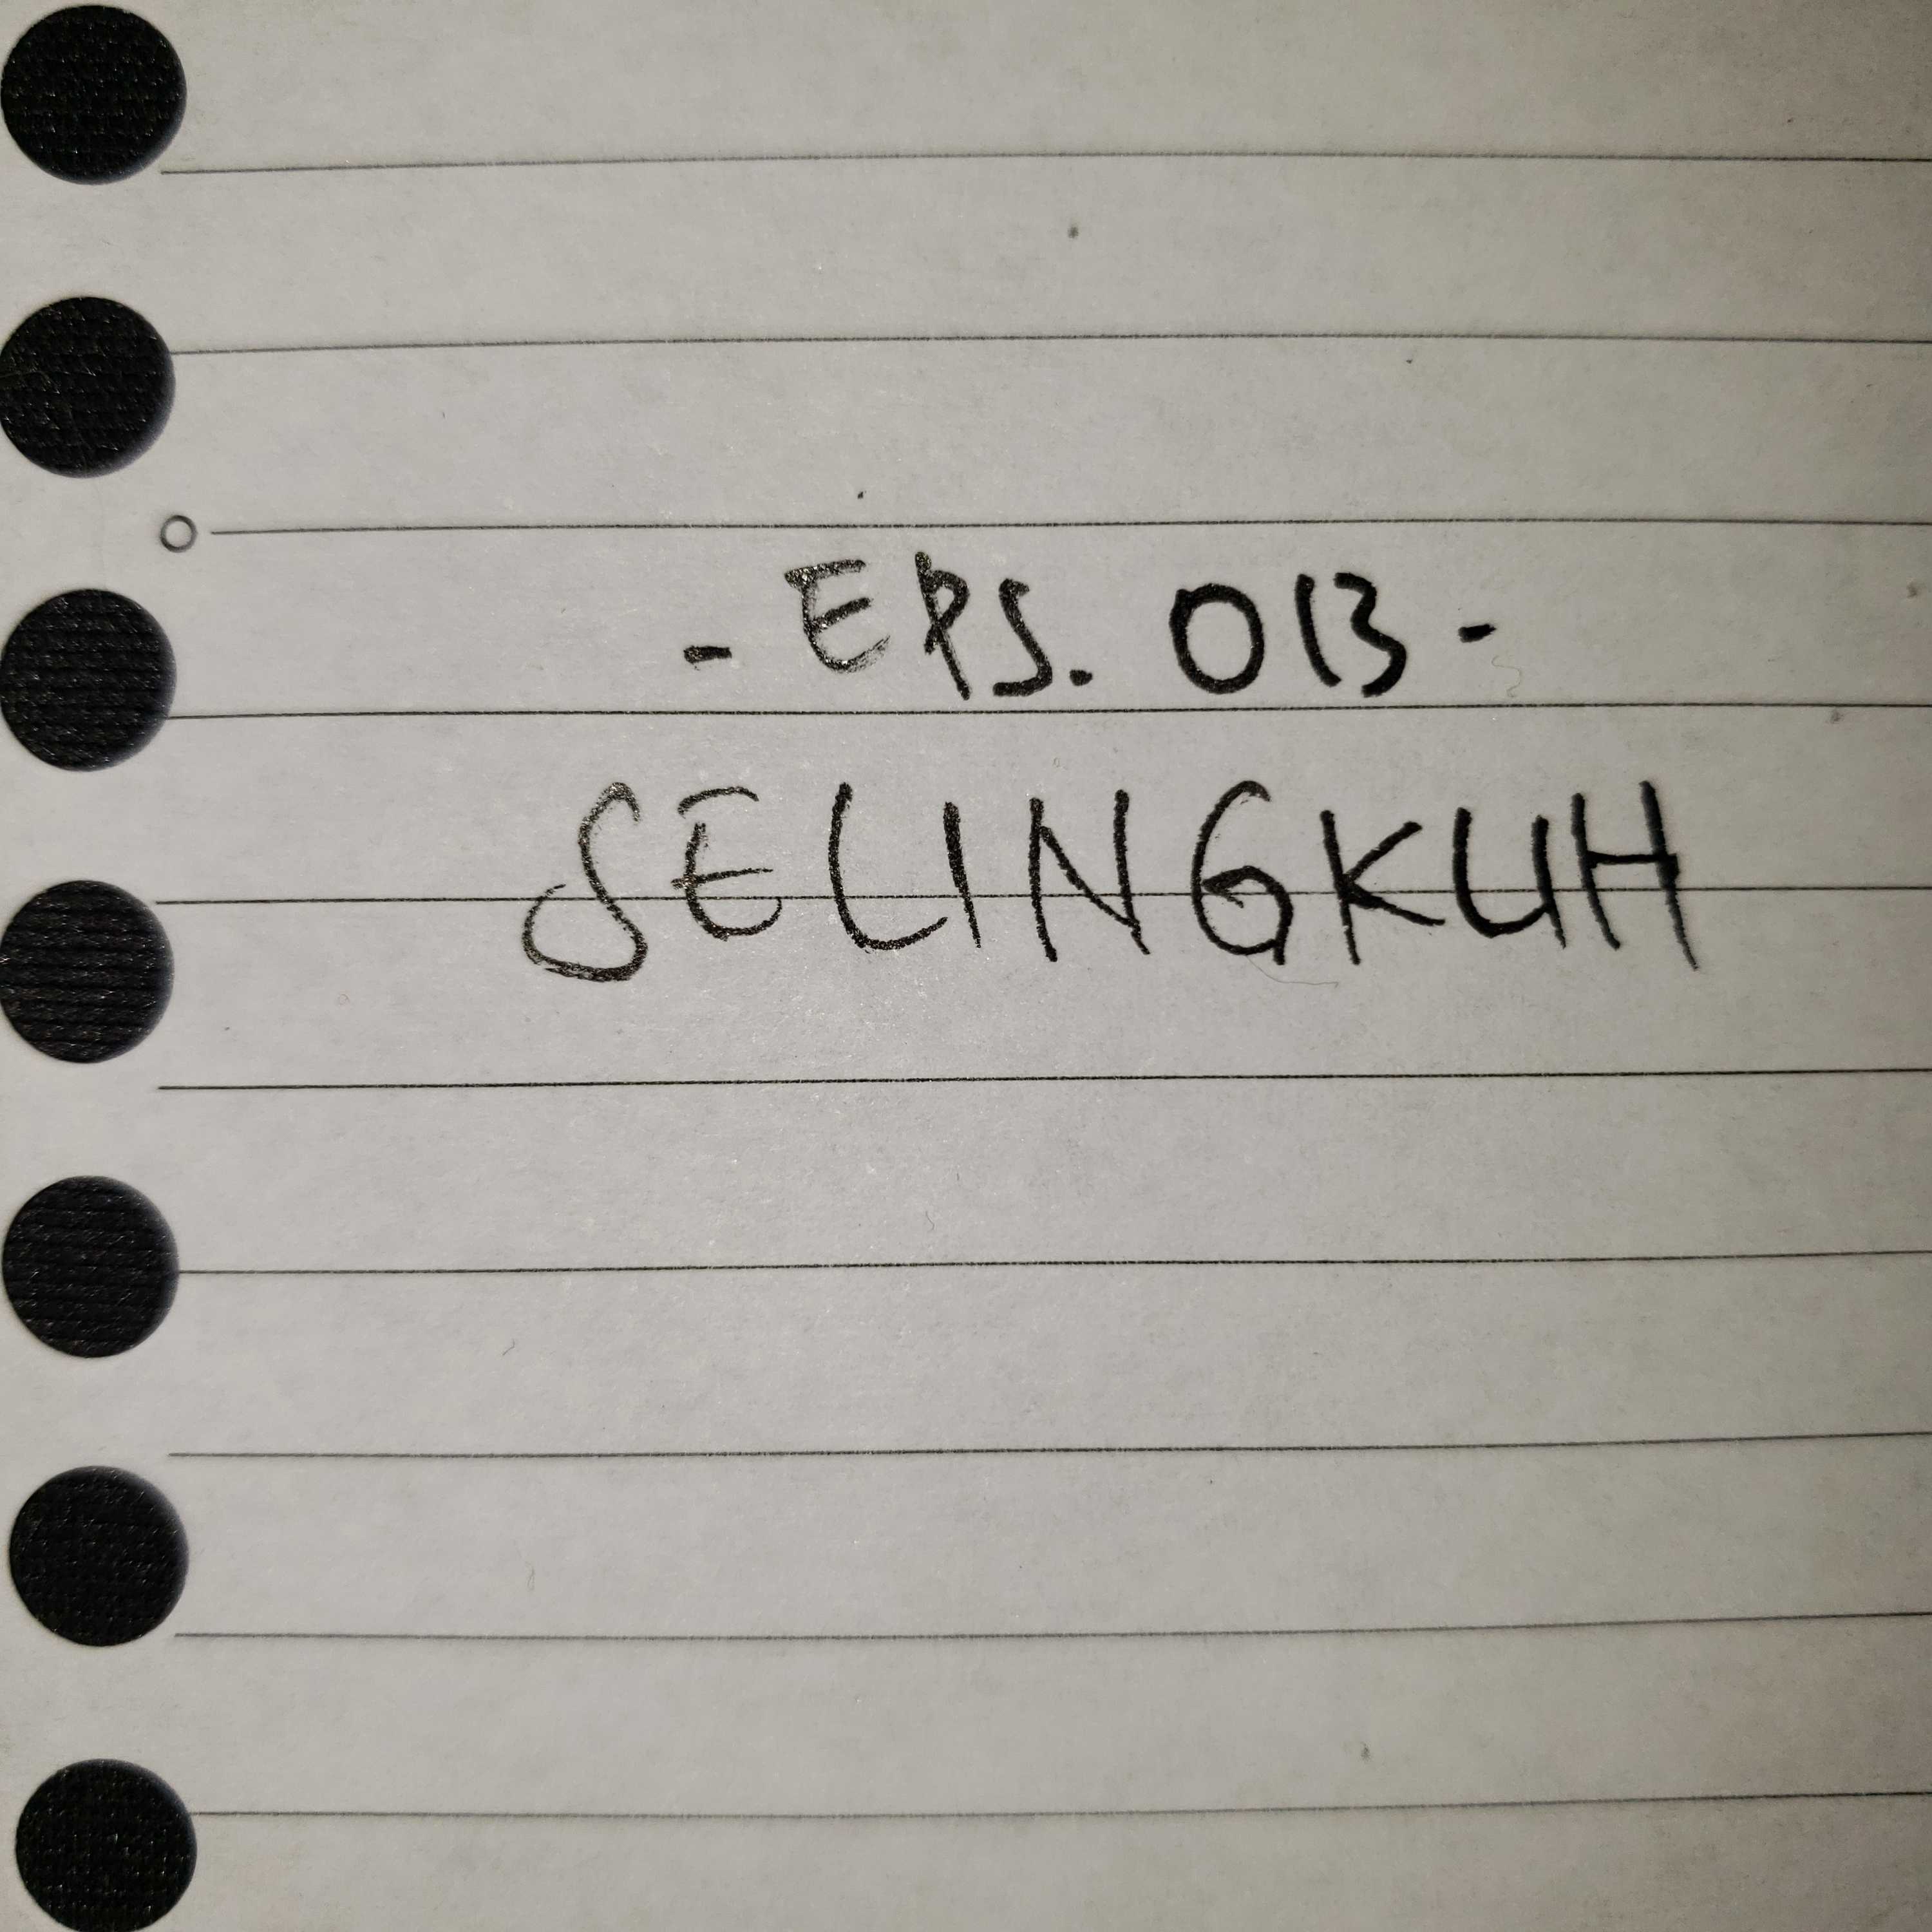 - EPS. 013 -
SELINGKUH